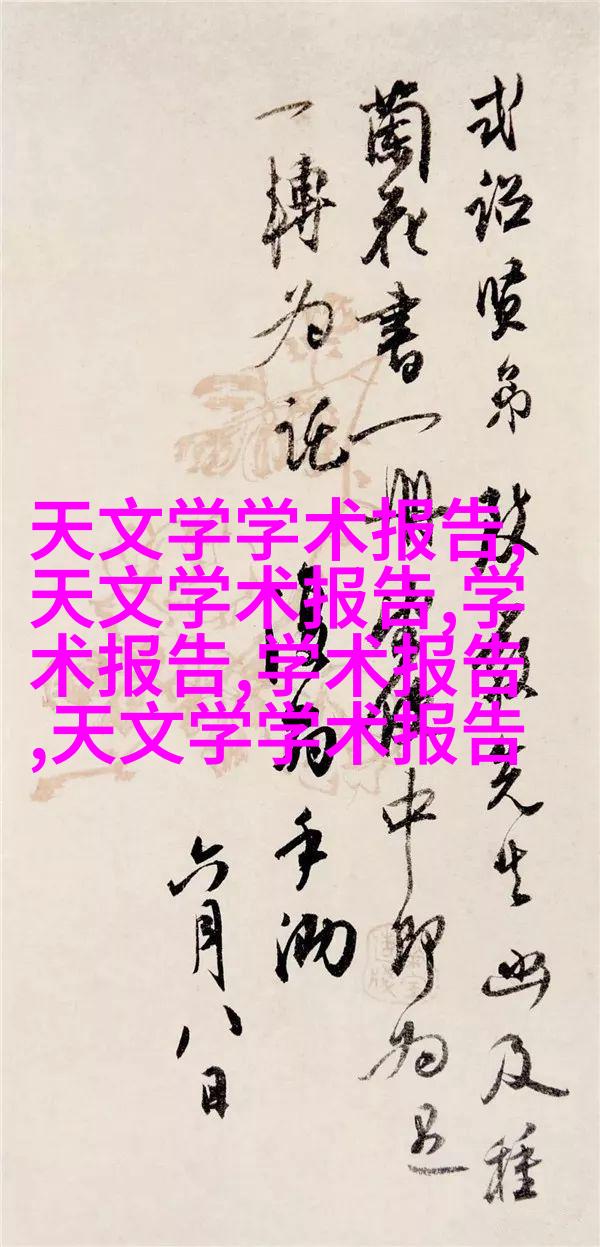 式诏贤弟 先生函及種
蘭花書一中即为
一轉为託 手泐
六月八日
天文学学术报告,
天文学术报告,学
术报告,学术报告
,天文学学术报告